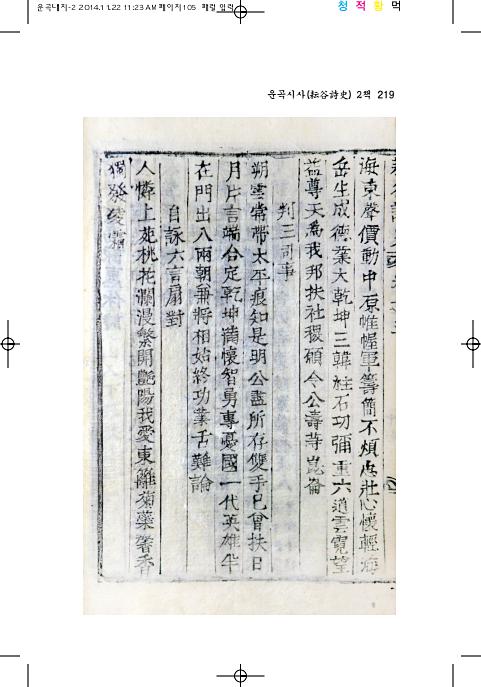 운곡시사(耘谷詩史) 2책 219
海東聲價動中原帷幄軍籌簡不煩忠壯心懷輕海
岳生成德業大乾坤三韓柱石功彌重六道雲霓望
益尊天爲我邦扶社稷願令公壽等崑崙
判三司事
朔雲常帶太平痕知是明公盡所存雙手已曾扶日
月片言端合定乾坤滿懷智勇專憂國一代英雄半
在門出入兩朝兼將相始終功業舌難論
自詠六言扇對
人憐上苑桃花爛漫繁開艶陽我愛東籬菊藥馨香
獨發凌霜
운곡대지-2 2014.11.22 11:23 AM 페이지105
청 적 황 먹